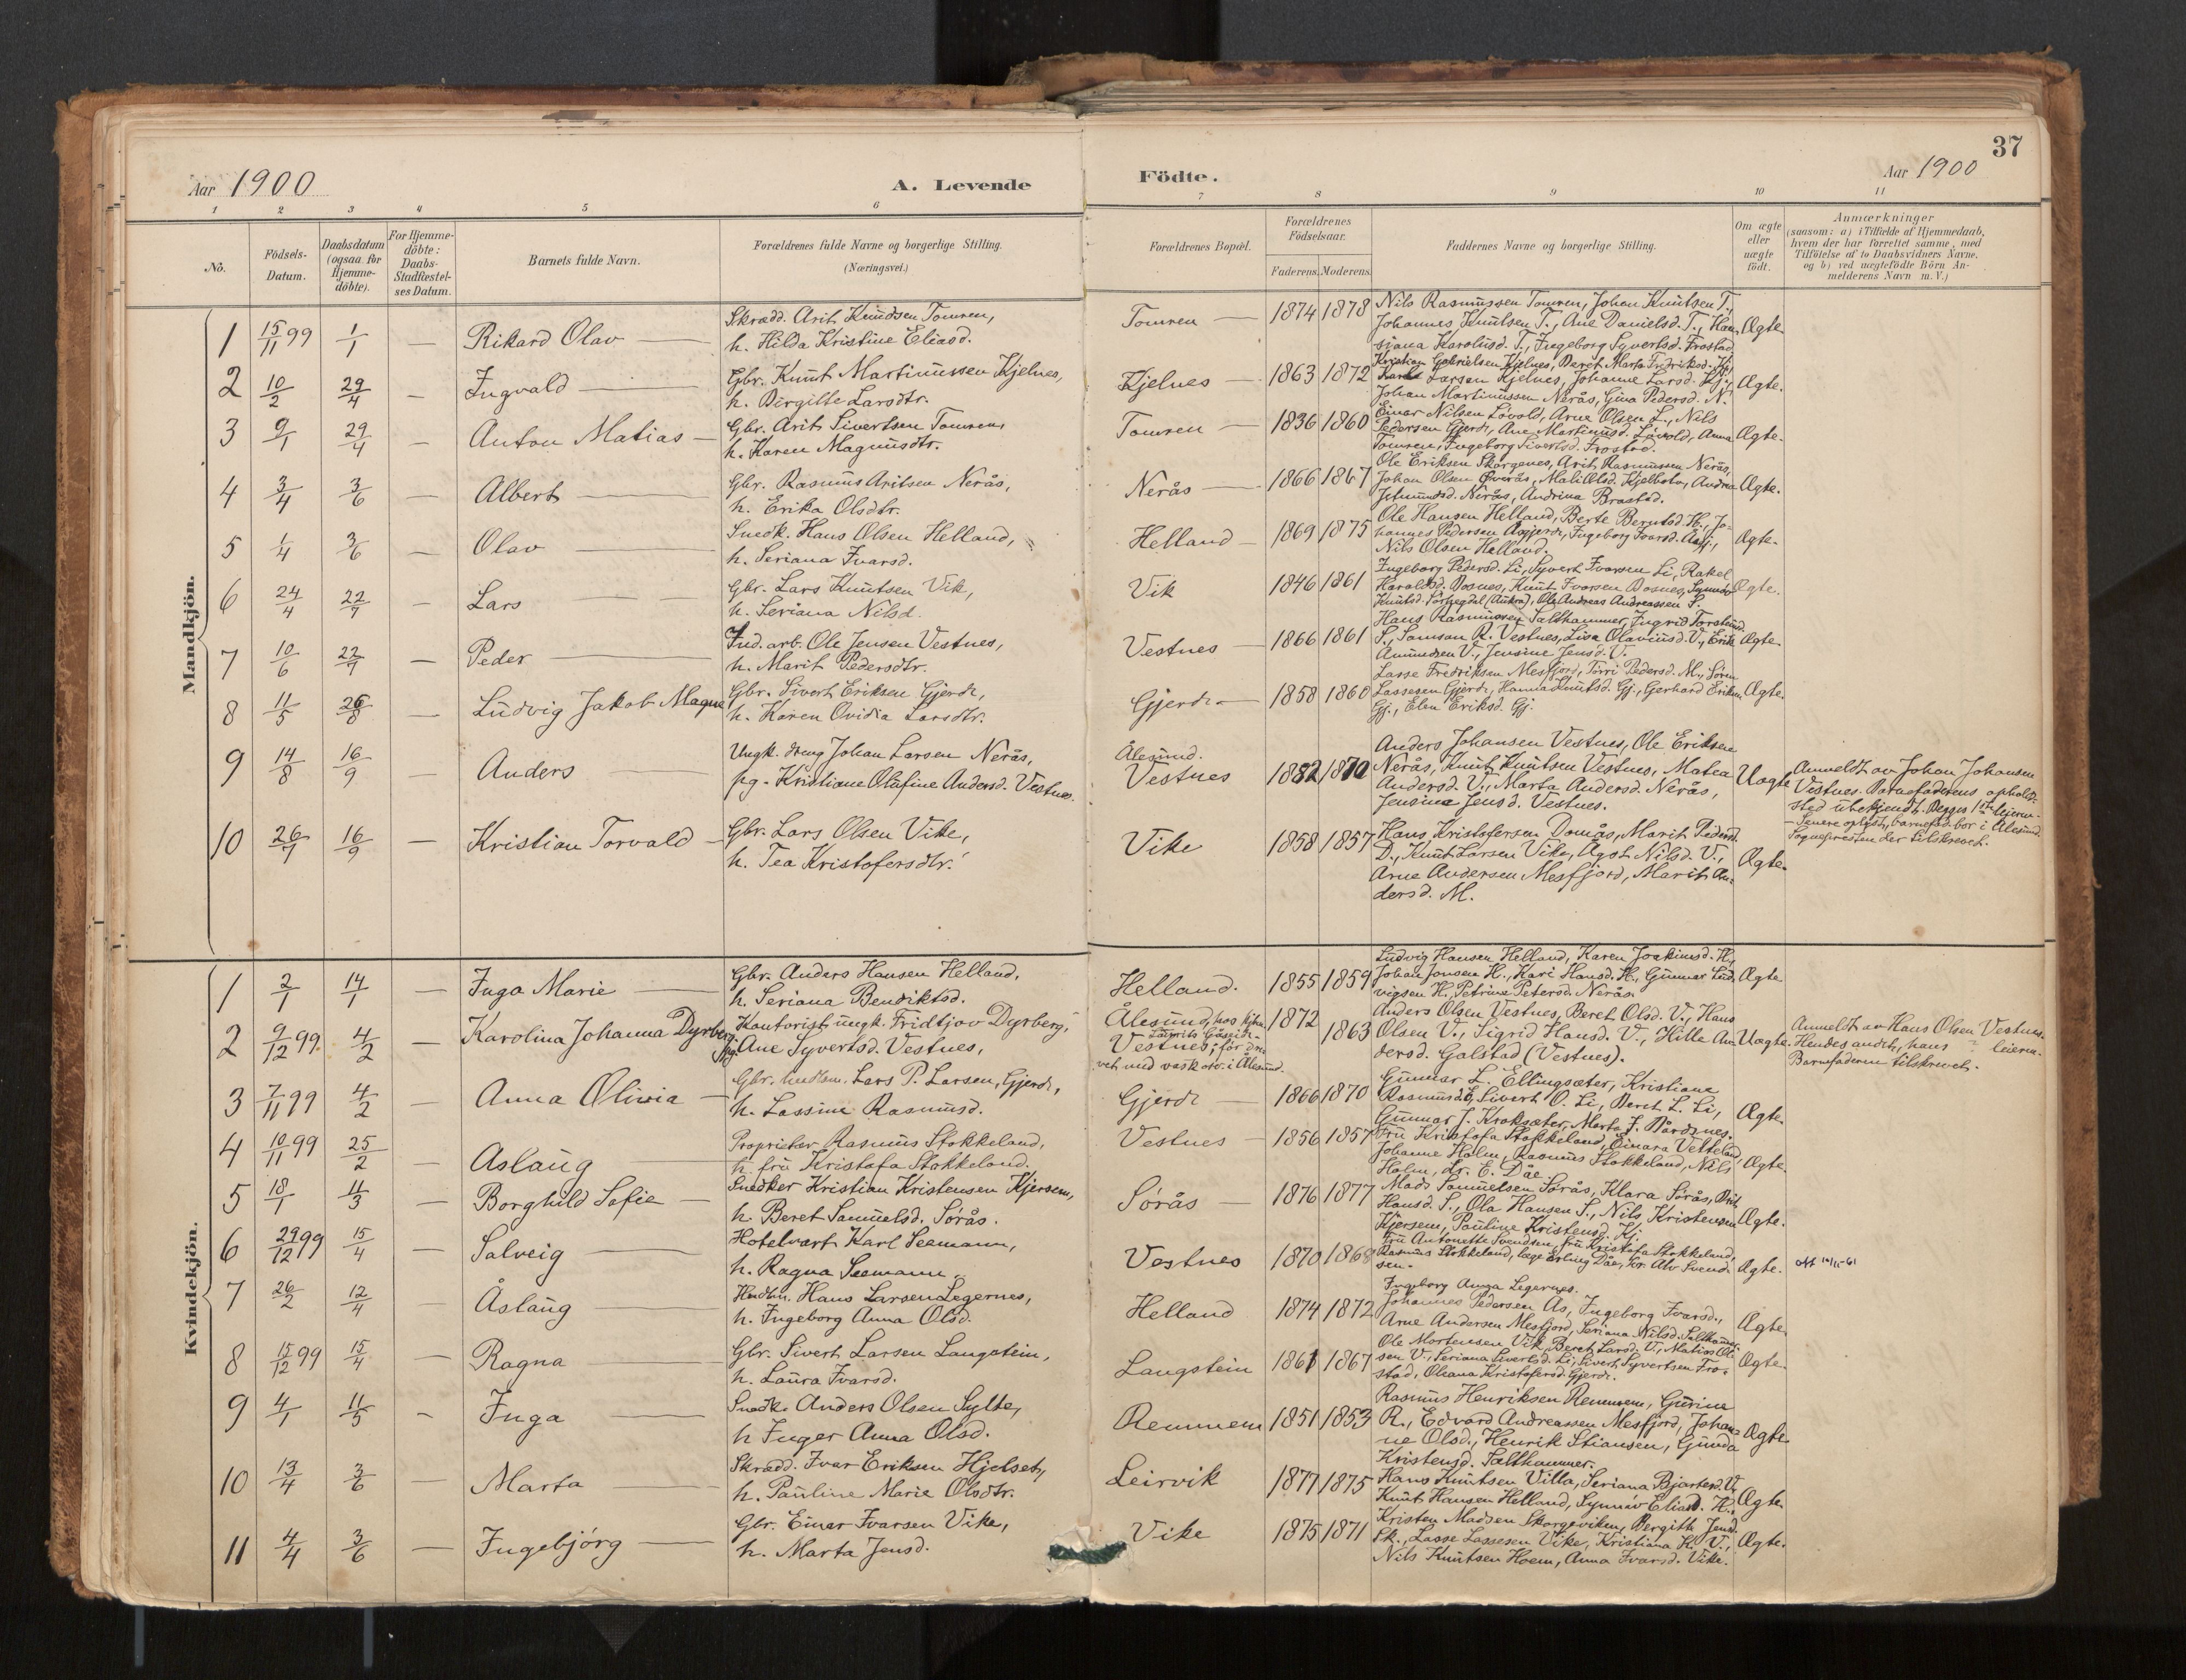 37
Aar 1900
A. Levende
Födte.
Aar 1900
1 2 3 4 5 6 7 8 9 10 11
No.
Födsels-
Datum.
Daabsdatum
(ogsaa for
Hjemme-
döbte).
For Hjemme-
döbte:
Daabs-
Stadfæstel-
ses Datum.
Barnets fulde Navn.
Forældrenes fulde Navne og borgerlige Stilling.
(Næringsvei.)
Forældrenes Bopæl.
Forældrenes
Födselsaar.
Faderens. Moderens.
Faddernes Navne og borgerlige Stilling.
Om ægte
eller
uægte
födt.
Anmærkninger
(saasom: a) i Tilfælde af Hjemmedaab,
hvem der har forrettet samme, med
Tilföielse af to Daabsvidners Navne,
og b) ved uægtefödte Börn An-
melderens Navn m. V.)
Mandkjön.
1 15/11 99 1/1 — Rikard Olav —
Skrædd. Arit Knudsen Tomren,
h. Hilda Kristine Eliasd.
Tomren — 1874 1878
Nils Rasmussen Tomren, Johan Knutsen T.,
Johannes Knutsen T., Ane Danielsd. T., Han-
sjana Karolusd. T., Ingeborg Syvertsd. Frostad.
Ægte
2 10/2 29/4 — Ingvald —
Gbr. Knut Martinussen Kjelnes,
h. Birgitte Larsdtr.
Kjelnes — 1863 1872
Kristian Gabrielsen Kjelnes, Beret Marta Fredriksd. Kj.,
Larsen Kjelnes, Johanne Larsd. Kj.,
Johan Martinussen Nerås, Gina Pedersd. N.
Ægte.
3 9/1 29/4 — Anton Matias —
Gbr. Arit Sivertsen Tomren,
h. Karen Magnusdtr.
Tomren — 1836 1860
Einar Nilsen Lövold, Arne Olsen L., Nils
Pedersen Gjerde, Ane Martinusd. Lövold, Anna
Tomren, Ingeborg Sivertsd. Frostad.
Ægte.
4 3/4 3/6 — Albert —
Gbr. Rasmus Aritsen Nerås,
h. Erika Olsdtr.
Nerås — 1866 1867
Ole Eriksen Skorgenes, Arit Rasmussen Nerås,
Johan Olsen Överås, Mali Olsd. Kjelbotn, Andrea
Nerås, Andrina Brastad.
Ægte.
5 1/4 3/6 — Olav —
Snedk. Hans Olsen Helland,
h. Seriana Ivarsd.
Helland — 1869 1875
Ole Hansen Helland, Berte Berntsd. H., Jo-
hannes Pedersen Agjerde, Ingeborg Ivarsd. Agj.,
Nils Olsen Helland.
Ægte.
6 24/4 22/7 — Lars —
Gbr. Lars Knutsen Vik,
h. Seriana Nilsd.
Vik 1846 1861
Ingeborg Pedersd. Li, Syvert Ivarsen Li, Rakel
Haraldsd. Bosnes, Knut Ivarsen Bosnes, Synnöv
Knutsd. (Aukra), Ole Andreas Andreassen S.
Ægte.
7 10/6 22/7 — Peder —
Ind. arb. Ole Jensen Vestnes,
h. Marit Pedersdtr.
Vestnes — 1866 1861
Hans Rasmussen Salthammer, Ingrid
S., Samson R. Vestnes, Lisa Olaviusd. V., Erik
Amundsen V., Jensine Jensd. V.
Ægte.
8 11/5 26/8 — Ludvig Jakob Magne
Gbr. Sivert Eriksen Gjerde,
h. Karen Ovidia Larsdtr.
Gjerde — 1858 1860
Lasse Fredriksen Mesfjord, Pedersd. M., Sören
Lassesen Gjerde, Hanna Knutsd. Gj., Gerhard Eriksen
Gj., Elen Eriksd. Gj.
Ægte.
9 14/8 16/9 — Anders —
Ungk. dreng Johan Larsen Nerås,
pg. Kristiane Olafine Andersd. Vestnes.
Ålesund.
Vestnes 1882 1870
Anders Johansen Vestnes, Ole Eriksen
Nerås, Knut Knutsen Vestnes, Matea
Andersd. V., Marta Andersd. Nerås,
Jensine Jensd. Vestnes.
Uægte
Anmeldt av Johan Johansen
Vestnes. Barnefaderens opholds-
sted ubekjendt. Begges 1ste leierm.
— Senere oplyst, barnefad. bor i Ålesund.
Sognepresten der tilskrevet.
10 26/7 16/9 — Kristian Torvald —
Gbr. Lars Olsen Vike,
h. Tea Kristofersdtr.
Vike 1858 1857
Hans Kristofersen Domås, Marit Pedersd.
D., Knut Larsen Vike, Ågot Nilsd. V.,
Arne Andersen Mesfjord, Marit An-
dersd. M.
Ægte.
Kvindekjön.
1 2/1 14/1 — Inga Marie —
Gbr. Anders Hansen Helland,
h. Seriana Bendiktsd.
Helland. 1855 1859
Ludvig Hansen Helland, Karen Joakimsd. H.,
Johan Jonsen H., Kari Hansd. H., Gunnar Lud-
vigsen H., Petrine Petersd. Nerås.
Ægte
2 9/12 99 4/2 — Karolina Johanna Dyrberg
Kontorist ungk. Fridtjov Dyrberg,
pg. Ane Syvertsd. Vestnes,
Ålesund, hos kjöbm.
Vestnes; för dre-
vet med vask o.s.v. i Ålesund.
1872 1863
Anders Olsen Vestnes, Beret Olsd. V., Hans
Olsen V., Sigrid Hansd. V., Hille An-
dersd. Galstad (Vestnes).
Uægte.
Anmeldt av Hans Olsen Vestnes.
Hendes andet, hans — leierm.
Barnefaderen tilskrevet.
3 7/11 99 4/2 — Anna Olivia —
Gbr. Lars P. Larsen, Gjerde,
h. Lassine Rasmusd.
Gjerde — 1866 1870
Gunnar L. Ellingsæter, Kristiane
Rasmusd. E., Sivert O. Li, Beret L. Li,
Gunnar J. Kroksæter, Marta J. Bårdsnes.
Ægte.
4 10/11 99 25/2 — Aslaug —
Proprietær Rasmus Stokkeland,
h. fru Kristofa Stokkeland.
Vestnes — 1856 1857
Fru Kristofa Stokkeland, Einara Vetteland,
Johanne Holm, Rasmus Stokkeland, Nils
Holm, dr. E. Dåe
Ægte.
5 18/1 11/3 — Borghild Sofie —
Snedker Kristian Kristensen Kjersem,
h. Beret Samuelsd. Sörås.
Sörås — 1876 1877
Mads Samuelsen Sörås, Klara Sörås,
Hansd. S., Ola Hansen S., Nils Kristensen
Kjersem, Pauline Kristensd. Kj.
Ægte.
6 29/12 99 15/4 — Salveig —
Hotelvært Karl Seemann,
h. Ragna Seemann.
Vestnes 1870 1868
Fru Antonette Svendsen, fru Kristofa Stokkeland,
Rasmus Stokkeland, læge Erling Dåe, Alv Svend-
sen.
Ægte.
7 26/2 12/4 — Åslaug —
Hans Larsen Legernes,
h. Ingeborg Anna Olsd.
Helland 1874 1872
Ingeborg Anna Legernes.
Johannes Pedersen As, Ingeborg Ivarsd.,
Arne Andersen Mesfjord, Seriana Nilsd.
Ægte.
8 15/12 99 15/4 — Ragna —
Gbr. Sivert Larsen Langstein,
h. Laura Ivarsd.
Langstein 1861 1867
Ole Mortensen Vik, Beret Larsd. V., Matias Ol-
sen V., Seriana Sivertsd. Li, Sivert Syvertsen Fro-
stad, Oleana Kristofersd. Gjerde.
Ægte.
9 4/1 11/5 — Inga —
Snedk. Anders Olsen Sylte,
h. Inger Anna Olsd.
Remmem 1851 1853
Rasmus Henriksen Remmem, Gurine
R., Edvard Andreassen Mesfjord, Johan-
ne Olsd., Henrik Stiansen, Gunda
Kristensd. Salthammer.
Ægte.
10 13/4 3/6 — Marta —
Skrædd. Ivar Eriksen Hjelset,
h. Pauline Marie Olsdtr.
Leirvik 1877 1875
Hans Knutsen Villa, Seriana Bjartesd. V.,
Knut Hansen Helland, Synnöv Eliasd. H.,
Ægte.
11 4/4 3/6 — Ingebjörg —
Gbr. Einar Ivarsen Vike,
h. Marta Jensd.
Vike 1875 1871
Kristen Madsen Skorgeviken, Bergith Jensd.
Sk., Lasse Lassesen Vike, Kristiana K. V.,
Nils Knutsen Hoem, Anna Ivarsd. Vike.
Ægte.